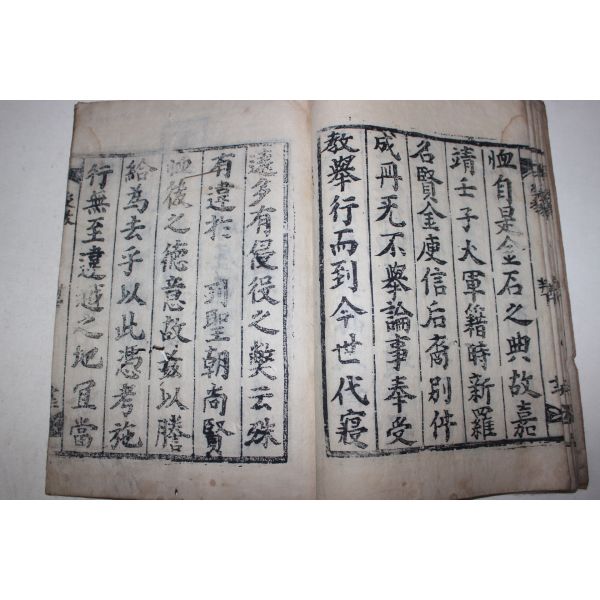 恤自是金石之典故嘉
靖壬子大軍籍時新羅
名賢金庾信后裔別件
成冊旡不舉論事奉受
教舉行而到今世代寢
遠多有侵役之獘云殊
有違於 列聖朝尚賢
恤後之德意故玆以謄
給為去乎以此憑考施
行無至違越之地宜當